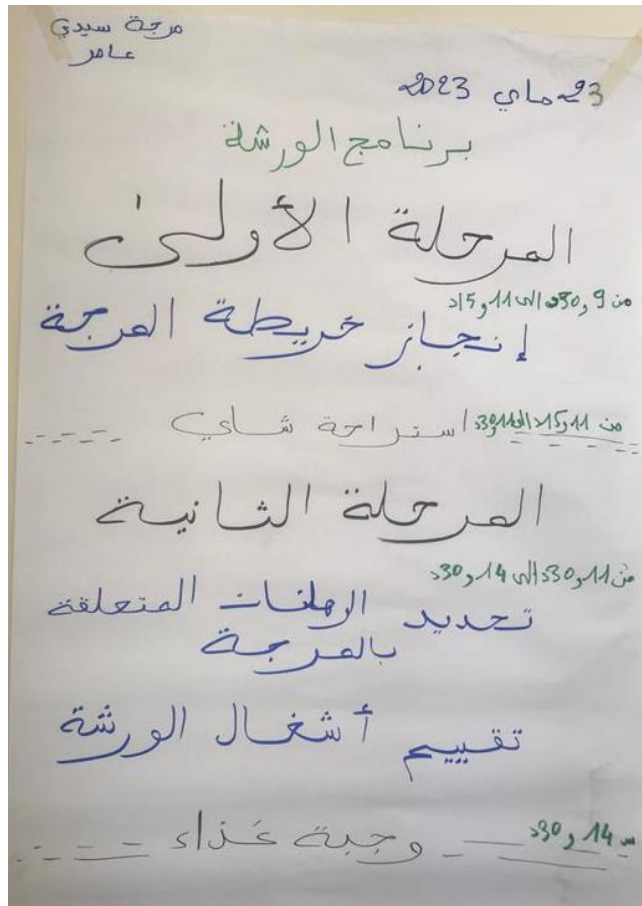 مرجة سيدي
عامر
23 ماي 2023
برنامج الورشة
المرحلة الأولى
من 9 و30د الى 11 و15د
إنجاز خريطة المرجة
من 11 و15د الى 11 و30د استراحة شاي
المرحلة الثانية
من 11 و30د الى 14 و30د
تحديد الرهانات المتعلقة
بالمرجة
تقييم أشغال الورشة
س 14 و30د وجبة غذاء